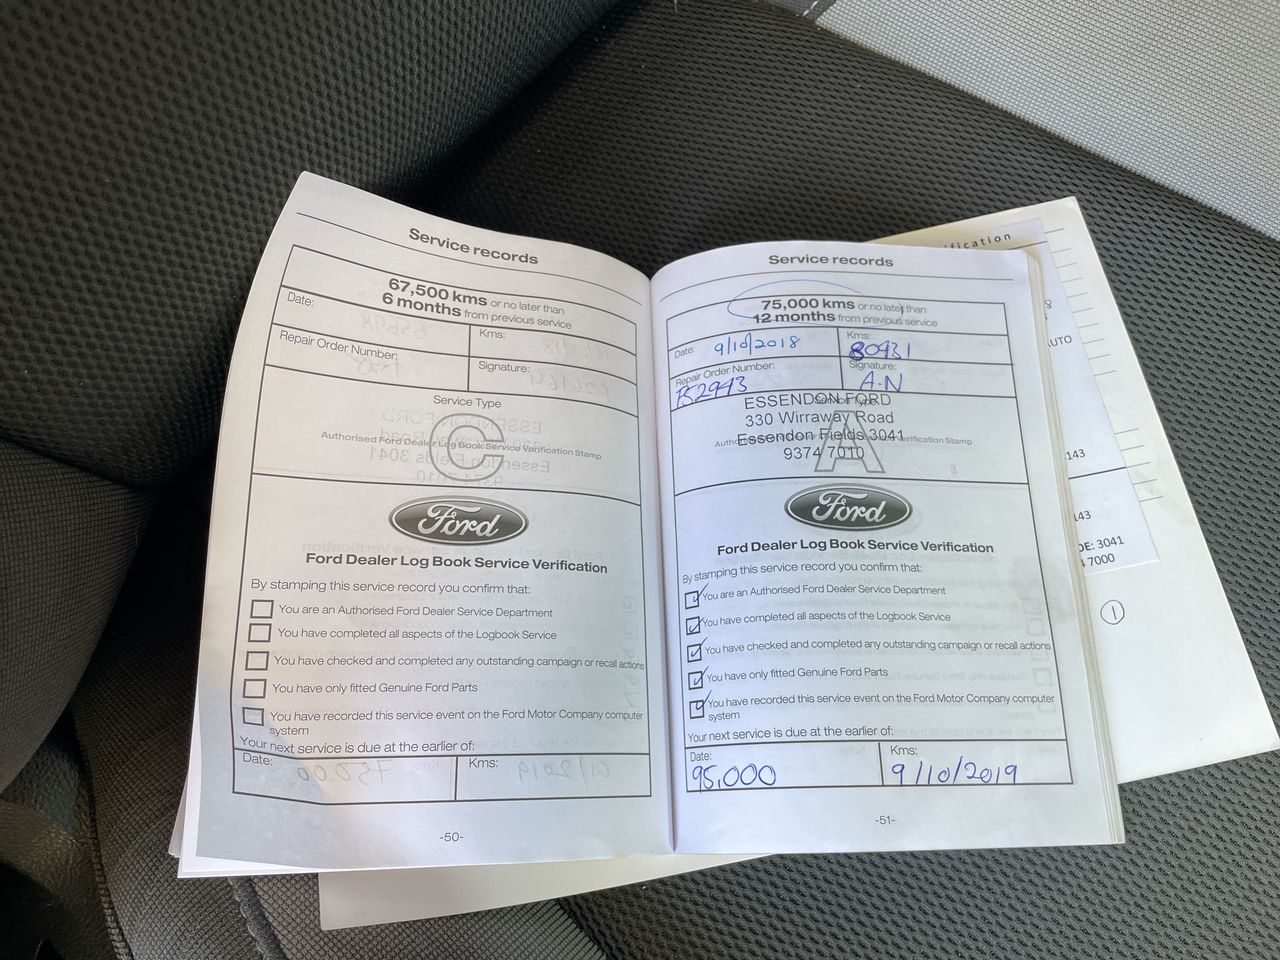 Service records
67,500 kms or no later than
6 months from previous service
Date:
Kms:
Repair Order Number:
Signature:
Service Type
C
Authorised Ford Dealer Log Book Service Verification Stamp
Ford
Ford Dealer Log Book Service Verification
By stamping this service record you confirm that:
You are an Authorised Ford Dealer Service Department
You have completed all aspects of the Logbook Service
You have checked and completed any outstanding campaign or recall actions
You have only fitted Genuine Ford Parts
You have recorded this service event on the Ford Motor Company computer
system
Your next service is due at the earlier of:
Date:
Kms:
-50-
Service records
75,000 kms or no later than
12 months from previous service
Date: 9/10/2018
Kms: 80431
Repair Order Number:
Signature: A.N
ESSENDON FORD
330 Wirraway Road
Essendon Fields 3041
9374 7010
A
Verification Stamp
Ford
Ford Dealer Log Book Service Verification
By stamping this service record you confirm that:
You are an Authorised Ford Dealer Service Department
You have completed all aspects of the Logbook Service
You have checked and completed any outstanding campaign or recall actions
You have only fitted Genuine Ford Parts
You have recorded this service event on the Ford Motor Company computer
system
Your next service is due at the earlier of:
Date: 95,000
Kms: 9/10/2019
-51-
UTO
143
143
DE: 3041
7000
1